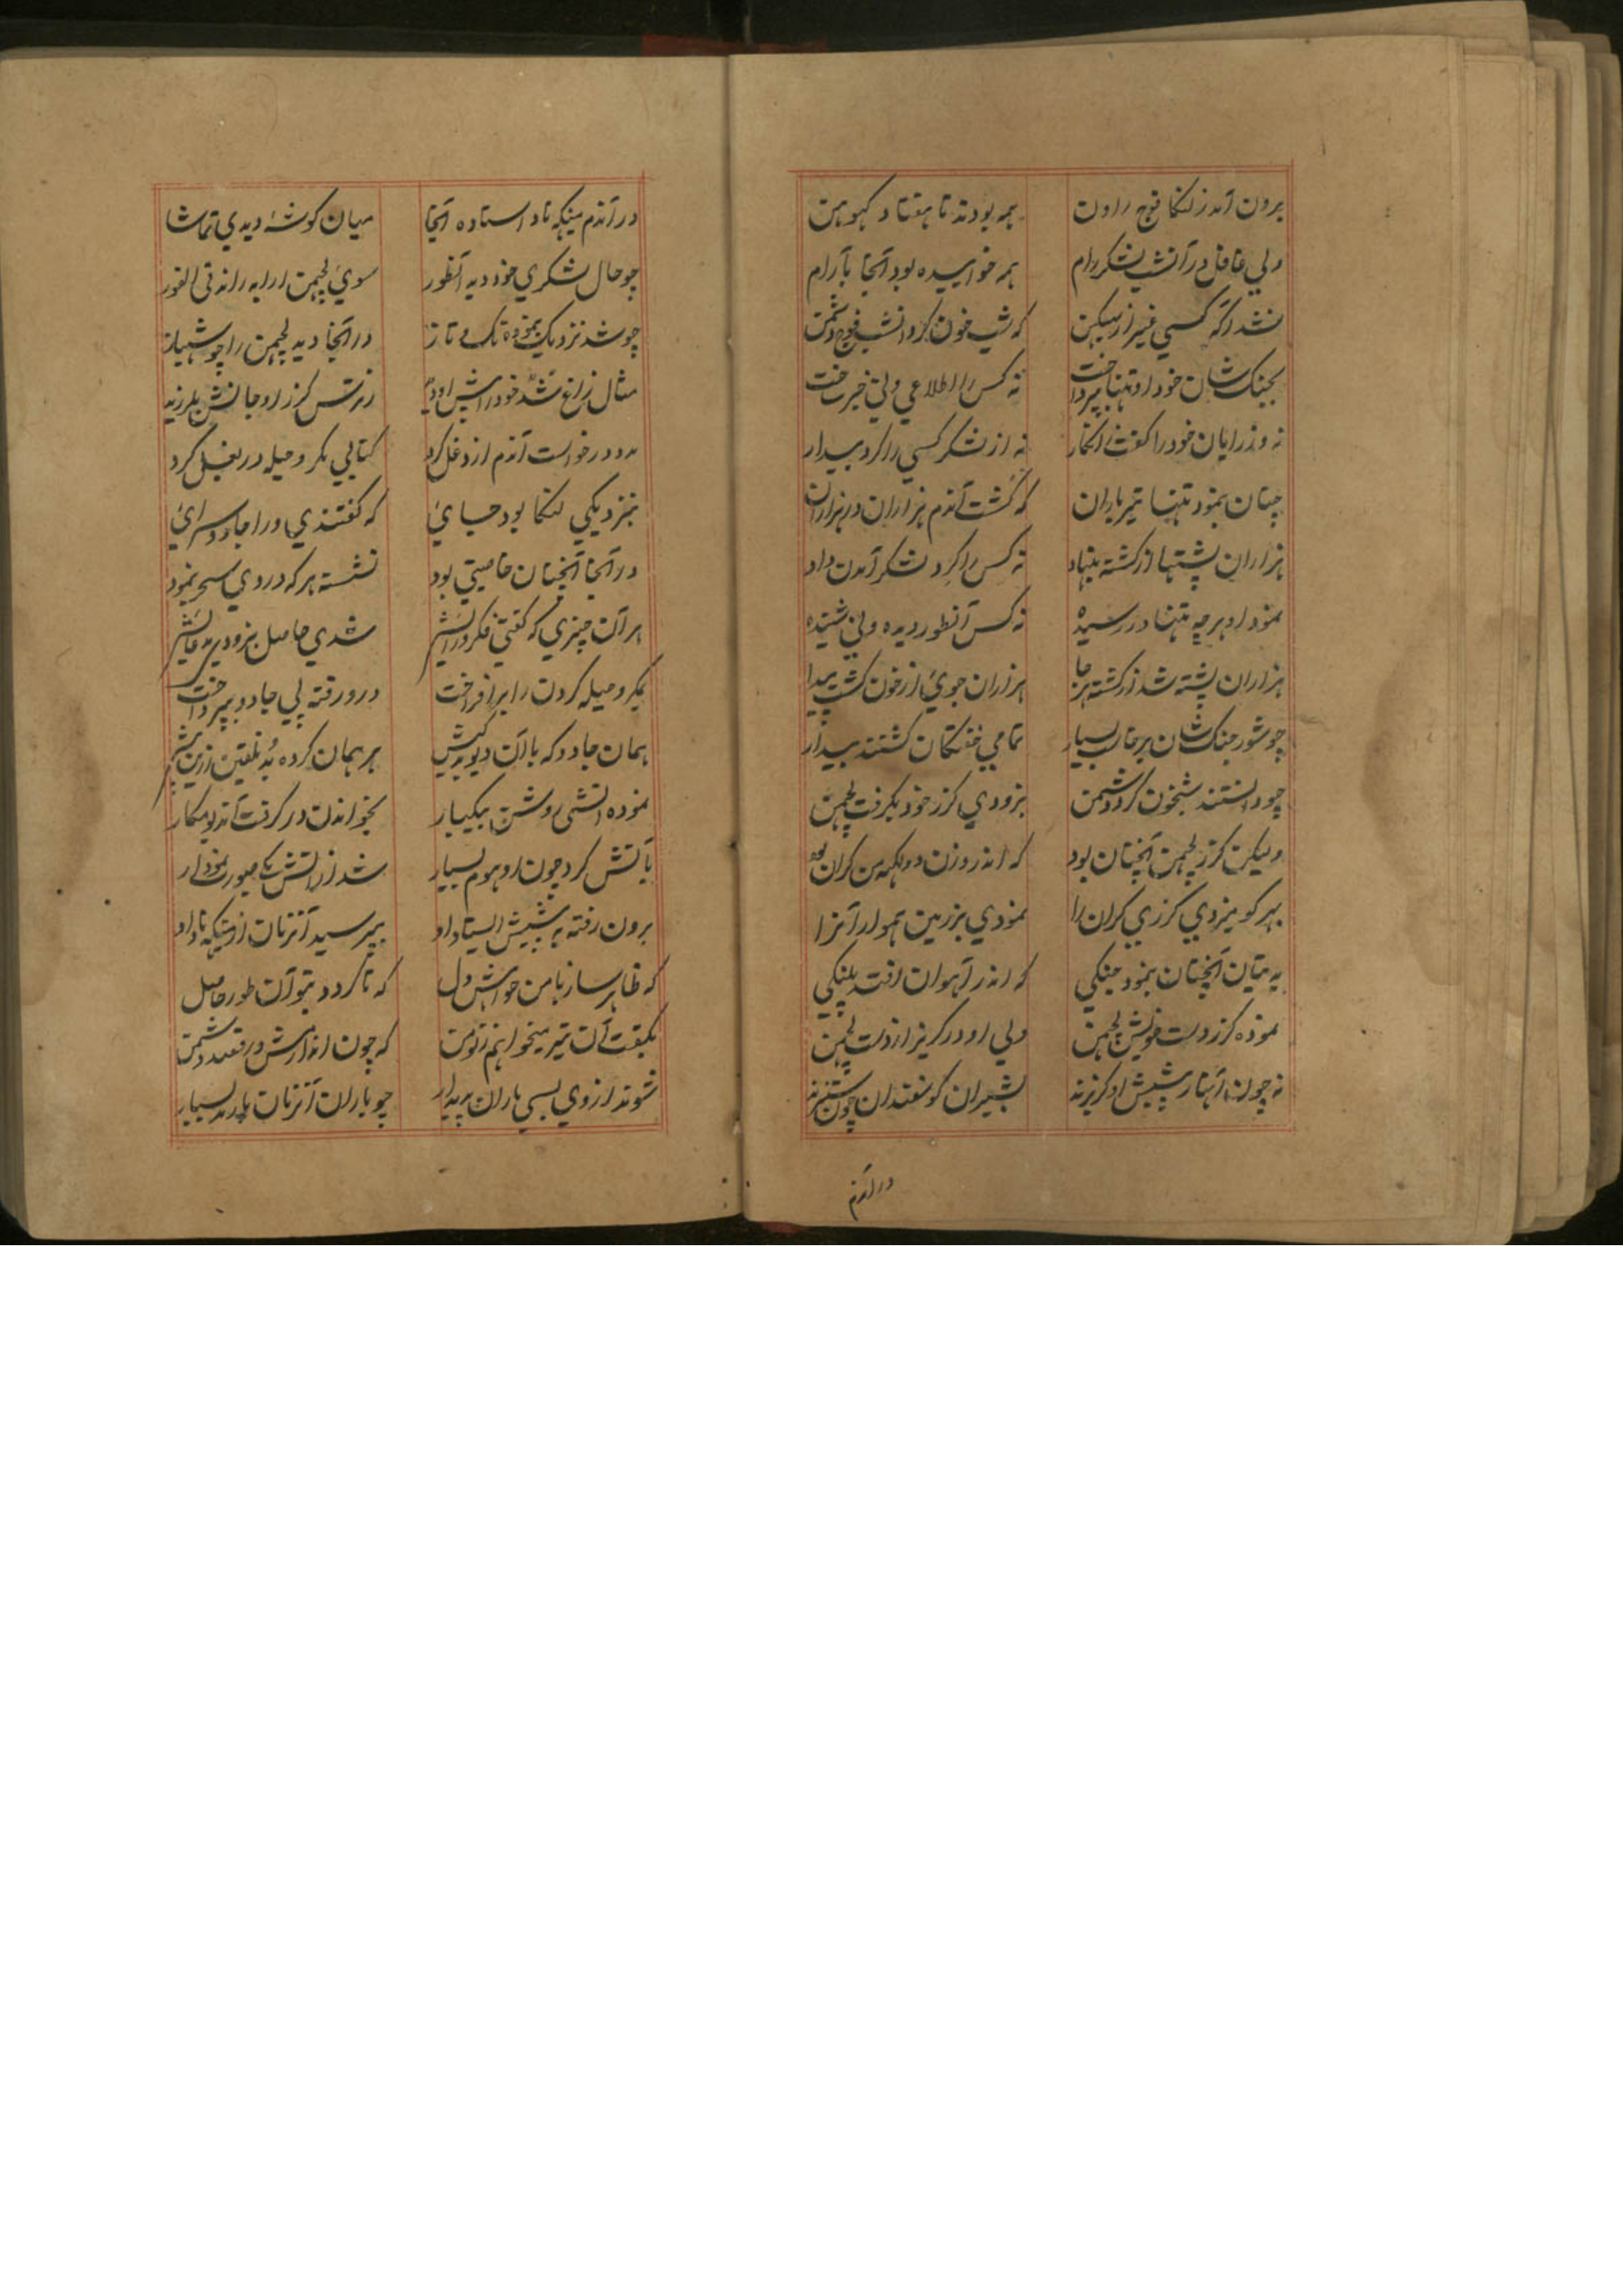 برون آمد ز لنکا فوج راون
همه بودند تا هفتاد کهوهن
ولي غافل در آنشب لشکر رام
همه خوابیده بود آنجا بآرام
نشد آکه کسي غیر از ببیکهن
که شب خون کرد انشب فوج دشمن
بجنک شان خود او تنها بپرداخت
نه کس را اطلاعي ولي خبر ساخت
نه وزرایان خود را کفت انکار
نه از لشکر کسي را کرد بیدار
چنان بنمود تنها تیر باران
که کشت آندم هزاران در هزاران
هزاران پشتها از کشته بنهاد
نه کس را کرد لشکر آمدن داد
نمود او هرچه تنها در رسیده
نه کس آنطور دیده ولي شنیده
هزاران پشته شد از کشته هر جا
هزاران جوي از خون کشت پیدا
چو شور جنک شان برخاست بسیار
تمامي خفتکان کشتند بیدار
چو دانستند شبخون کرد دشمن
بزودي کرز خود بکرفت لچهمن
ولیکن کرز لچهمن آنچنان بود
که اندر وزن دو لکهه من کران بود
بهر کو میزدي کرزي کران را
نمودي بر زمین هموار آنرا
به یتان آنچنان بنمود جنکي
که اندر آهوان افتد پلنکي
نموده کرز دست خویش لچهمن
ولي او در کریز از دست لچهمن
نه چون آنها ز پیشش او کریزند
بشیران کوسفندان چون ستیزند
در آندم
در آندم میکهه ناد استاده آنجا
میان کوشهٔ دیدي تماشا
چو حال لشکري خود دید آنطور
سوي لچهمن ارابه راند في الفور
چو شد نزدیک بنموده تک و تاز
در آنجا دید لچهمن را چو شهباز
مثال زاغ شد خود را پیش او دید
ز ترس کرز او جانش بلرزید
مدد درخواست آندم از دغل کرد
کتابي مکر و حیله در بغل کرد
بنزدیکي لنکا بود جایي
که کفتندي ورا جادو سرائي
در آنجا آنچنان خاصیتي بود
نشسته هر که در وي سحر بنمود
هر آن چیزي که کفتي فکر در آتش
شدي حاصل بزودي مدعایش
بمکر و حیله کردن را برافراخت
درو رفته پي جادو بپرداخت
همان جادو که با آن دیو بدکیش
برهمان کرده بُد تلقین ازین پیش
نموده آتشي روشن بیکبار
بخواندن در کرفت آندیو مکار
بآتش کرد چون او هوم بسیار
شد از آتش یک صورت نمودار
برون رفته به پیشش ایستاد او
بپرسید آنزمان از میکهه ناد او
که ظاهر ساز با من خواهش دل
که تا کردد بتو آن طور حاصل
بکفت آن تیر میخواهم ز تو من
که چون اندازمش در قصد دشمن
شوند از وي بسي باران پدیدار
چو باران آنزمان بارند بسیار